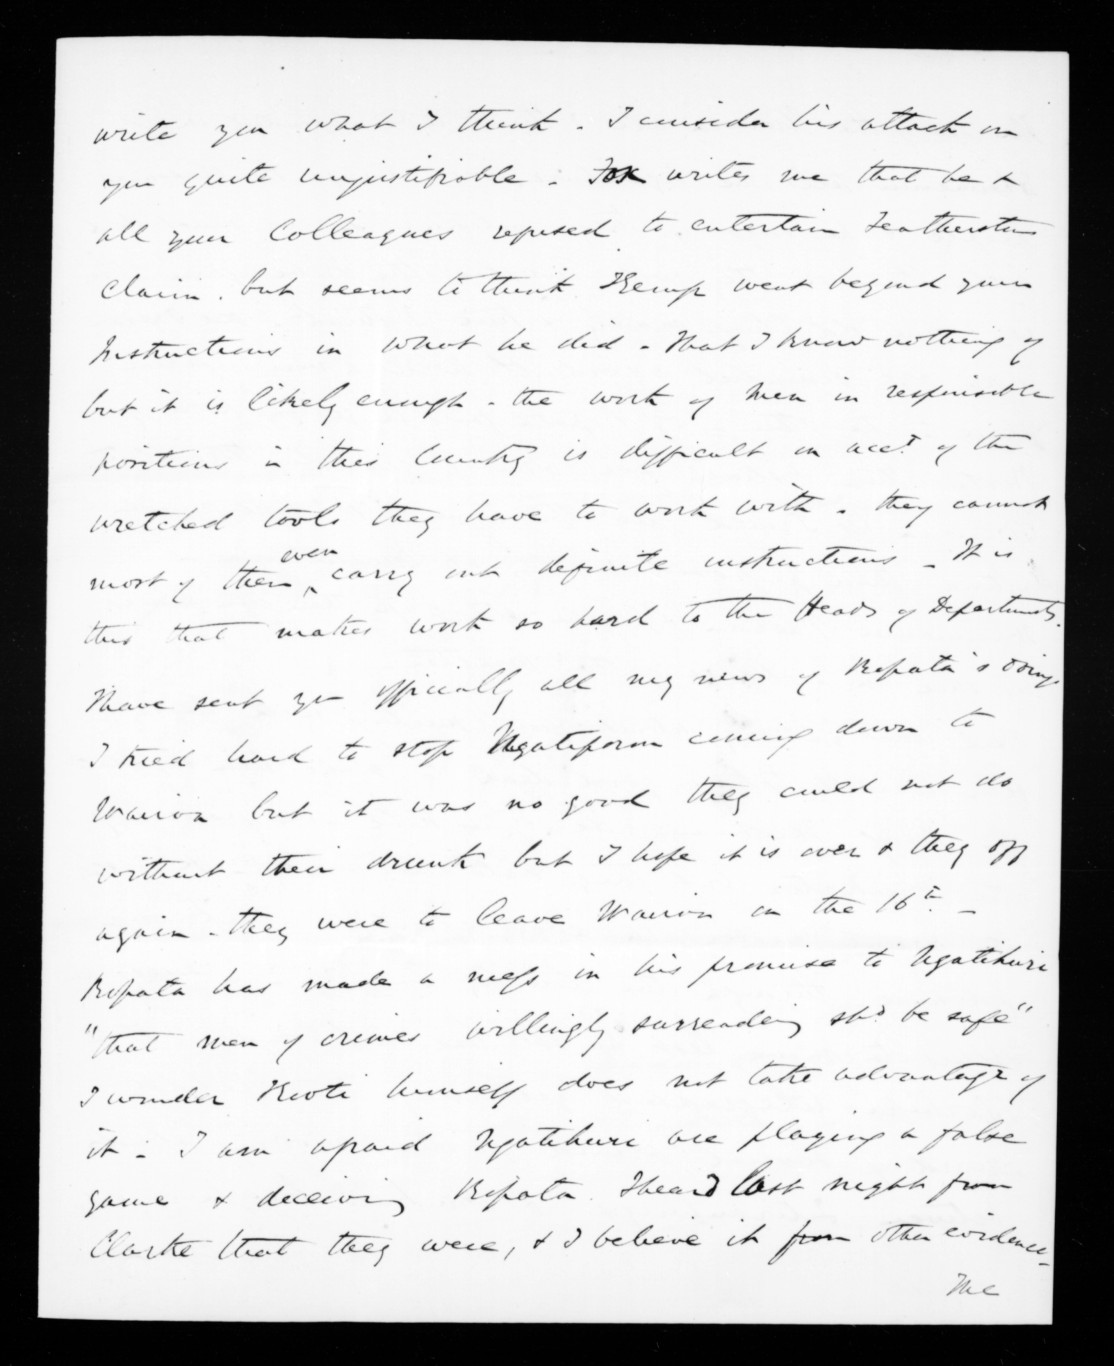 write you what I think - I consider his attack on
you quite unjustifiable - Fox writes me that he &
all your Colleagues refused to entertain Featherston
claim. but seems to think Kemp went beyond your
Instructions in what he did - that I know nothing of
but it is likely enough - the work of men in responsible
positions in this Country is difficult on acct of the
wretched tools they have to work with - they cannot
most of them even carry out definite instructions - It is
this that makes work so hard to the Heads of Departments.
I have sent you officially all my news of Ropata's doings
I tried hard to stop Ngatiporou coming down to
Wairoa but it was no good they could not do
without their drunk but I hope it is over & they off
again - they were to leave Wairoa on the 16th -
Ropata has made a mess in his promise to Ngatihuri
"that men of crimes willingly surrendering shd be safe"
I wonder Kooti himself does not take advantage of
it - I am afraid Ngatihuri are playing a false
game & deceiving Ropata. I heard last night from
Clarke that they were, & I believe it from other evidence -
The